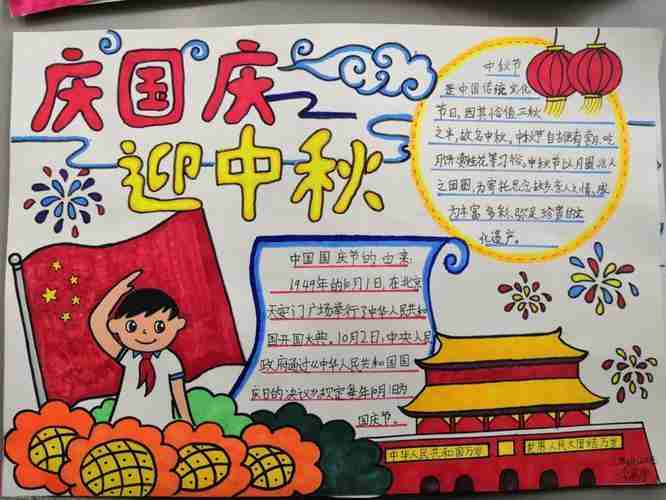 庆国庆
迎中秋
中秋节
是中国传统文化
节日，因其恰值三秋
之半，故名中秋，中秋节自古便有赏月、吃
月饼、赏桂花等习俗，中秋节以月圆兆人
之团圆，为寄托思念故乡亲人之情，成
为丰富多彩、弥足珍贵的文
化遗产。
中国国庆节的由来：
1949年的10月1日，在北京
天安门广场举行了中华人民共和
国开国大典。10月2日，中央人民
政府通过《中华人民共和国国
庆日的决议》规定每年10月1日为
国庆节。
中华人民共和国万岁
世界人民大团结万岁